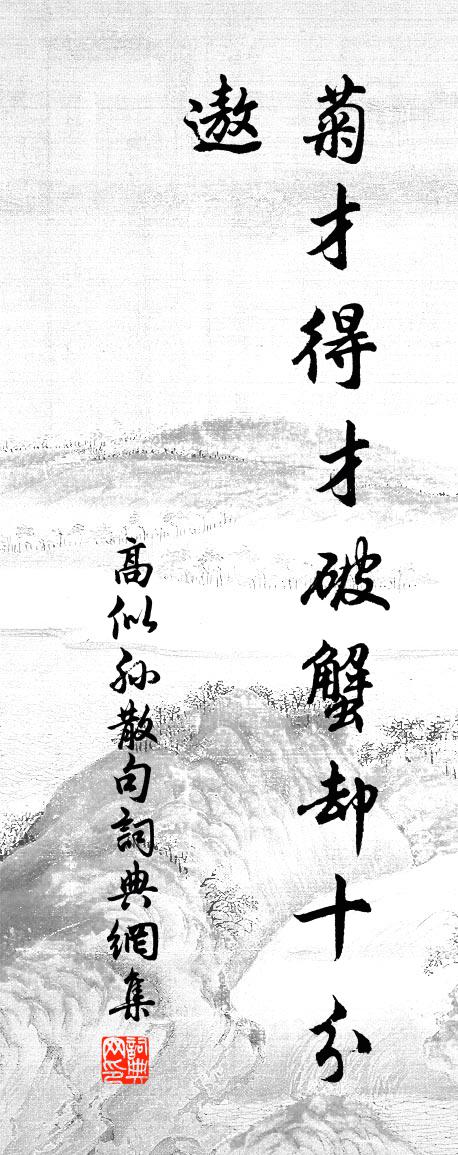 菊才得才破蟹却十分
遨
高似孙散句詞典網集
詞典
网印